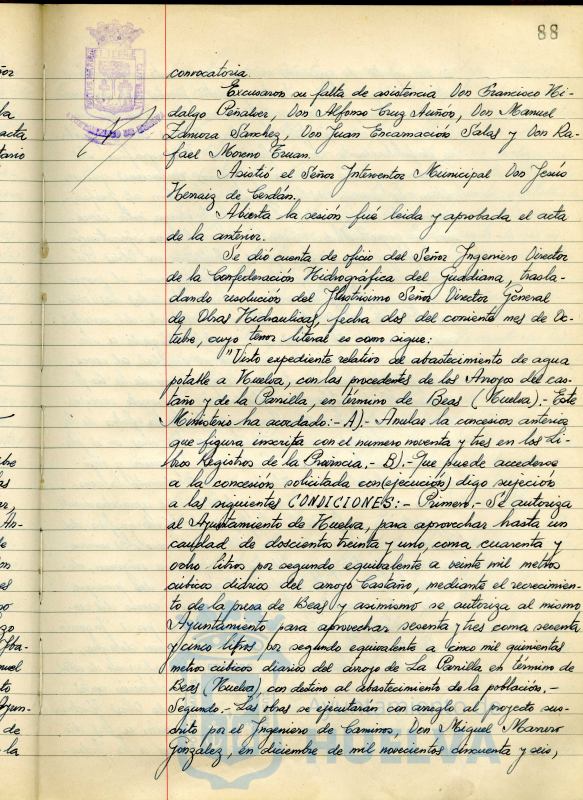 88
convocatoria.
Excusaron su falta de asistencia Don Francisco Hi-
dalgo Peñalver, Don Alfonso Cruz Auñón, Don Manuel
Zamora Sanchez, Don Juan Encarnación Salas y Don Ra-
fael Moreno
Asistió el Señor Interventor Municipal Don Jesús
Herraiz de Cerdán.
Abierta la sesión fué leida y aprobada el acta
de la anterior.
Se dió cuenta de oficio del Señor Ingeniero Director
de la Confederación Hidrográfica del Guadiana, trasla-
dando resolución del Ilustrísimo Señor Director General
de Obras Hidraulicas, fecha dos del corriente mes de Oc-
tubre, cuyo tenor literal es como sigue:
"Visto expediente relativo de abastecimiento de agua
potable a Huelva, con las procedentes de los Arroyos del cas-
taño y de la Panilla, en término de Beas (Huelva).- Este
Ministerio ha acordado:- A).- Anular la concesion anterior
que figura inscrita con el numero noventa y tres en los Li-
bros Registros de la Provincia.- B).- Que puede accederse
a la concesión solicitada con(ejecución) digo sujecion
a las siguientes CONDICIONES:- Primero.- Se autoriza
al Ayuntamiento de Huelva, para aprovechar hasta un
caudal de doscientos treinta y uno, coma cuarenta y
ocho litros por segundo equivalente a veinte mil metros
cúbicos diarios del arroyo Castaño, mediante el recrecimien-
to de la presa de Beas y asimismo se autoriza al mismo
Ayuntamiento para aprovechar sesenta y tres coma sesenta
y cinco litros por segundo equivalente a cinco mil quinientas
metros cúbicos diarios del arroyo de La Panilla en término de
Beas (Huelva), con destino al abastecimiento de la población.-
Segundo.- Las obras se ejecutarán con arreglo al proyecto sus-
crito por el Ingeniero de Caminos, Don Miguel
Gonzalez, en diciembre de mil novecientos cincuenta y seis,